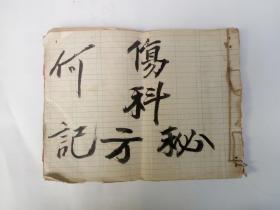 傷科
秘方
何記